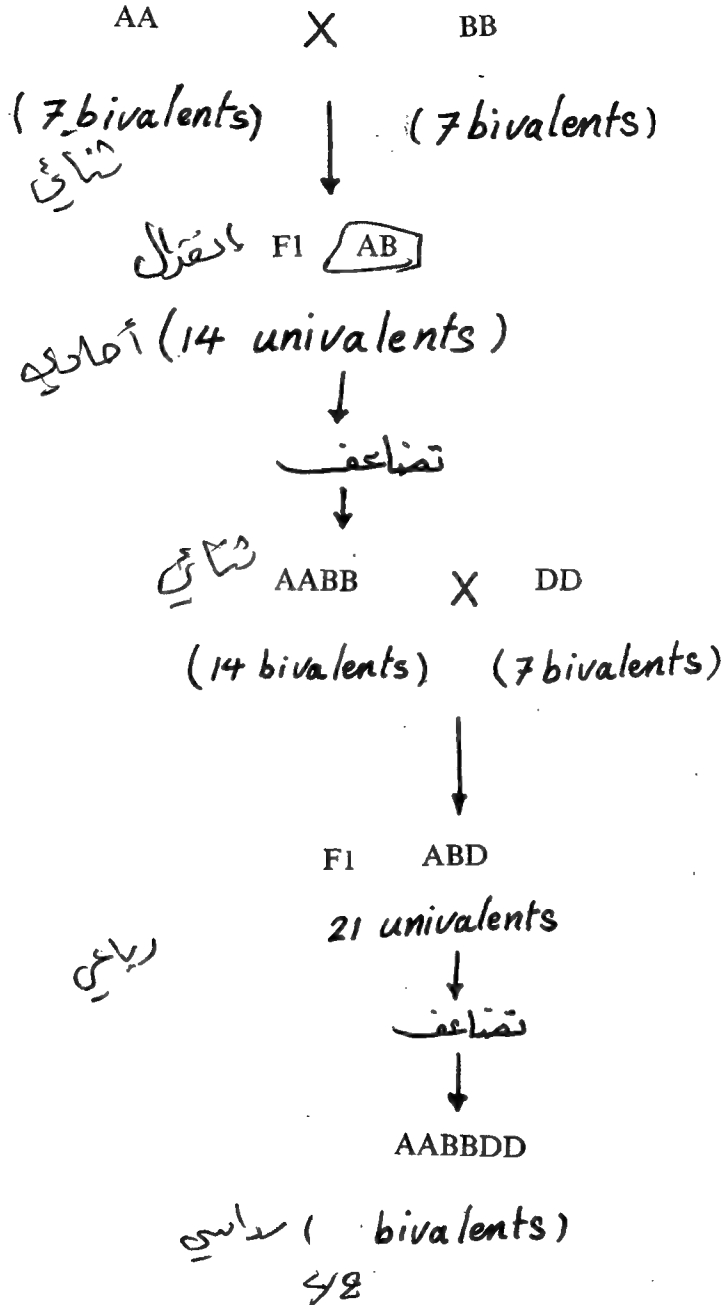 AA X BB
(7 bivalents) (7 bivalents)
ثنائي
انعزال F1 AB
أحادي (14 univalents)
تضاعف
ثنائي AABB X DD
(14 bivalents) (7 bivalents)
F1 ABD
21 univalents
رباعي
تضاعف
AABBDD
سداسي ( bivalents)